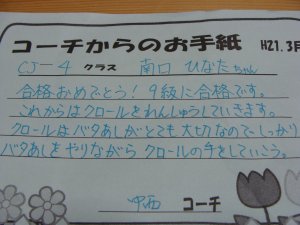 コーチからのお手紙 H21.3月
CJ-4 クラス 南口 ひなたちゃん
合格おめでとう！9級に合格です。
これからはクロールをれんしゅうしていきます。
クロールはバタあしがとても大切なのでしっかり
バタあしをやりながらクロールの手をしていこう。
中西 コーチ